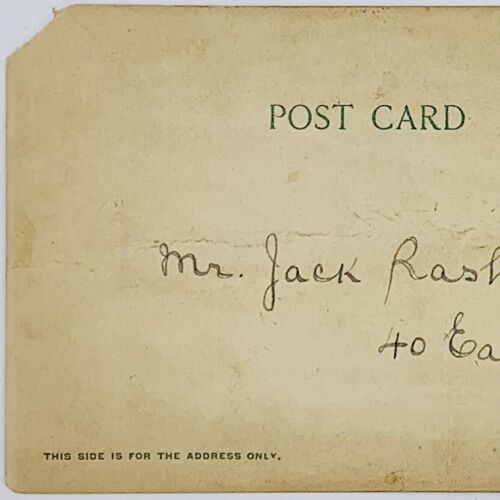 POST CARD
Mr. Jack Rash
40 Ea
THIS SIDE IS FOR THE ADDRESS ONLY.